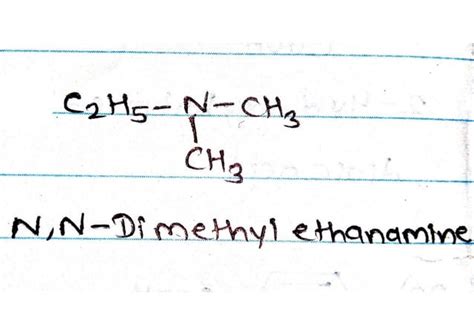 C2H5-N-CH3
CH3
N,N-Dimethyl ethanamine